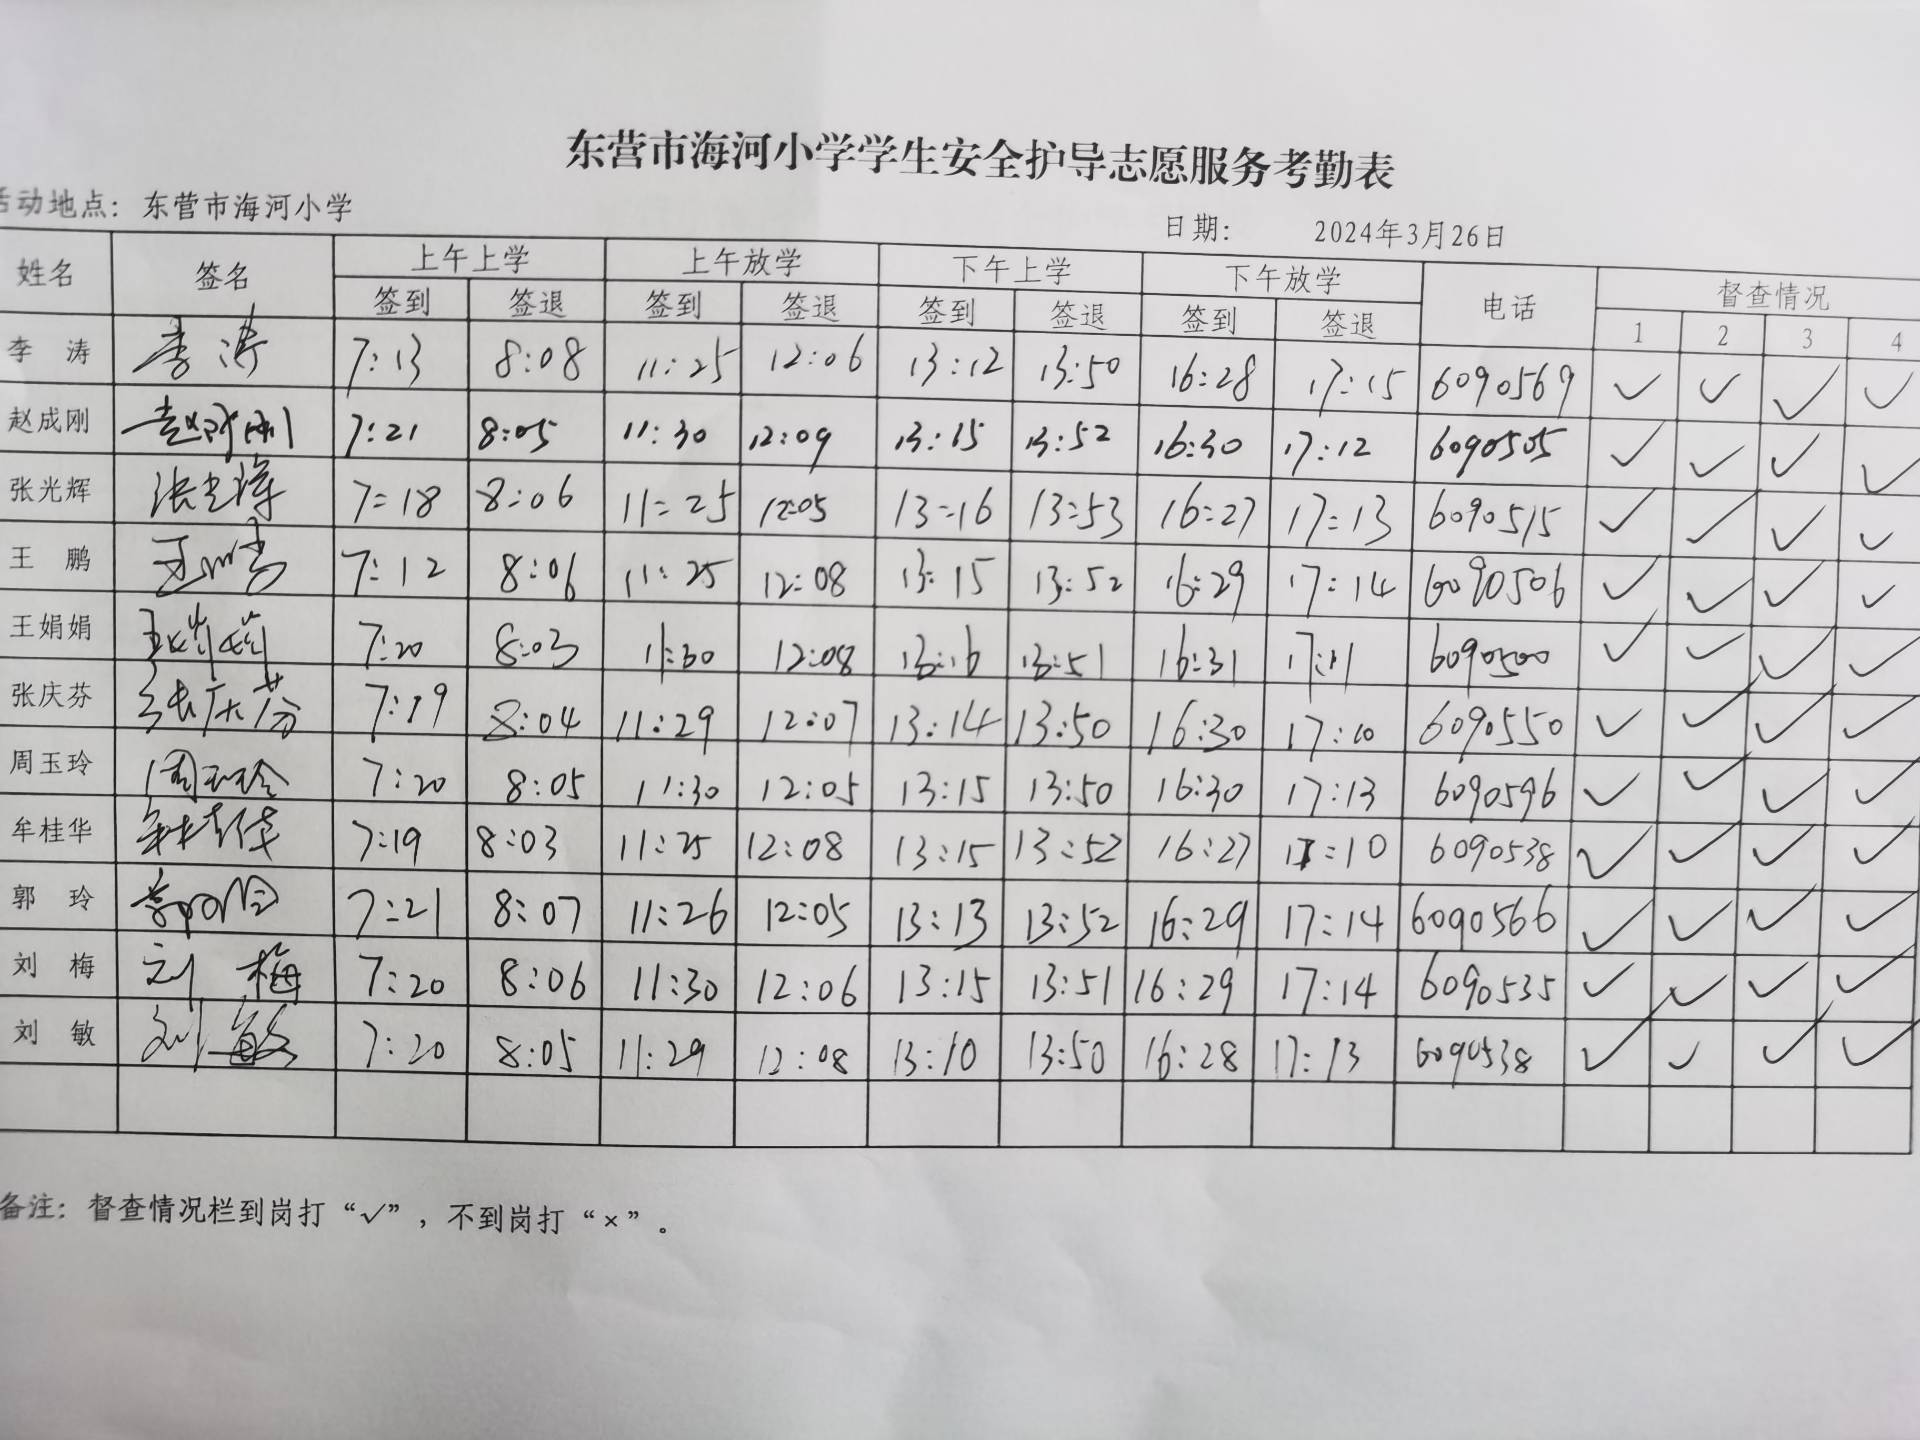 东营市海河小学学生安全护导志愿服务考勤表
活动地点：东营市海河小学 日期： 2024年3月26日
姓名 签名 上午上学 上午放学 下午上学 下午放学 电话 督查情况
签到 签退 签到 签退 签到 签退 签到 签退 1 2 3 4
李 涛 李涛 7:13 8:08 11:25 12:06 13:12 13:50 16:28 17:15 6090569 ✓ ✓ ✓ ✓
赵成刚 赵成刚 7:21 8:05 11:30 12:09 13:15 13:52 16:30 17:12 6090505 ✓ ✓ ✓ ✓
张光辉 张光辉 7:18 8:06 11:25 12:05 13:16 13:53 16:27 17:13 6090515 ✓ ✓ ✓ ✓
王 鹏 王鹏 7:12 8:06 11:25 12:08 13:15 13:52 16:29 17:14 6090506 ✓ ✓ ✓ ✓
王娟娟 王娟娟 7:20 8:03 11:30 12:08 13:16 13:51 16:31 17:11 6090500 ✓ ✓ ✓ ✓
张庆芬 张庆芬 7:19 8:04 11:29 12:07 13:14 13:50 16:30 17:10 6090550 ✓ ✓ ✓ ✓
周玉玲 周玉玲 7:20 8:05 11:30 12:05 13:15 13:50 16:30 17:13 6090596 ✓ ✓ ✓ ✓
牟桂华 牟桂华 7:19 8:03 11:25 12:08 13:15 13:52 16:27 17:10 6090538 ✓ ✓ ✓ ✓
郭 玲 郭玲 7:21 8:07 11:26 12:05 13:13 13:52 16:29 17:14 6090566 ✓ ✓ ✓ ✓
刘 梅 刘梅 7:20 8:06 11:30 12:06 13:15 13:51 16:29 17:14 6090535 ✓ ✓ ✓ ✓
刘 敏 刘敏 7:20 8:05 11:29 12:08 13:10 13:50 16:28 17:13 6090538 ✓ ✓ ✓ ✓
备注：督查情况栏到岗打“✓”，不到岗打“×”。